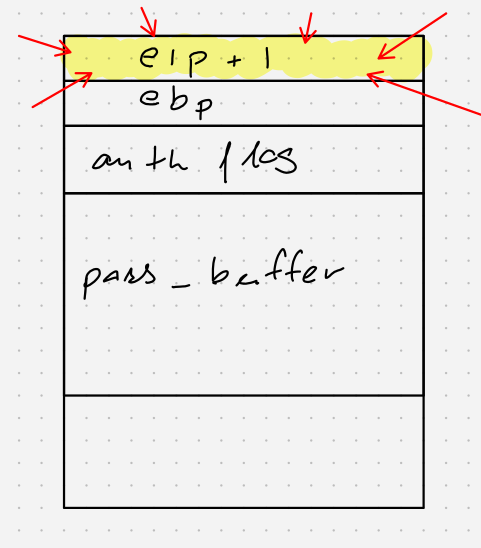 eip + 1
ebp
auth flag
pass_buffer